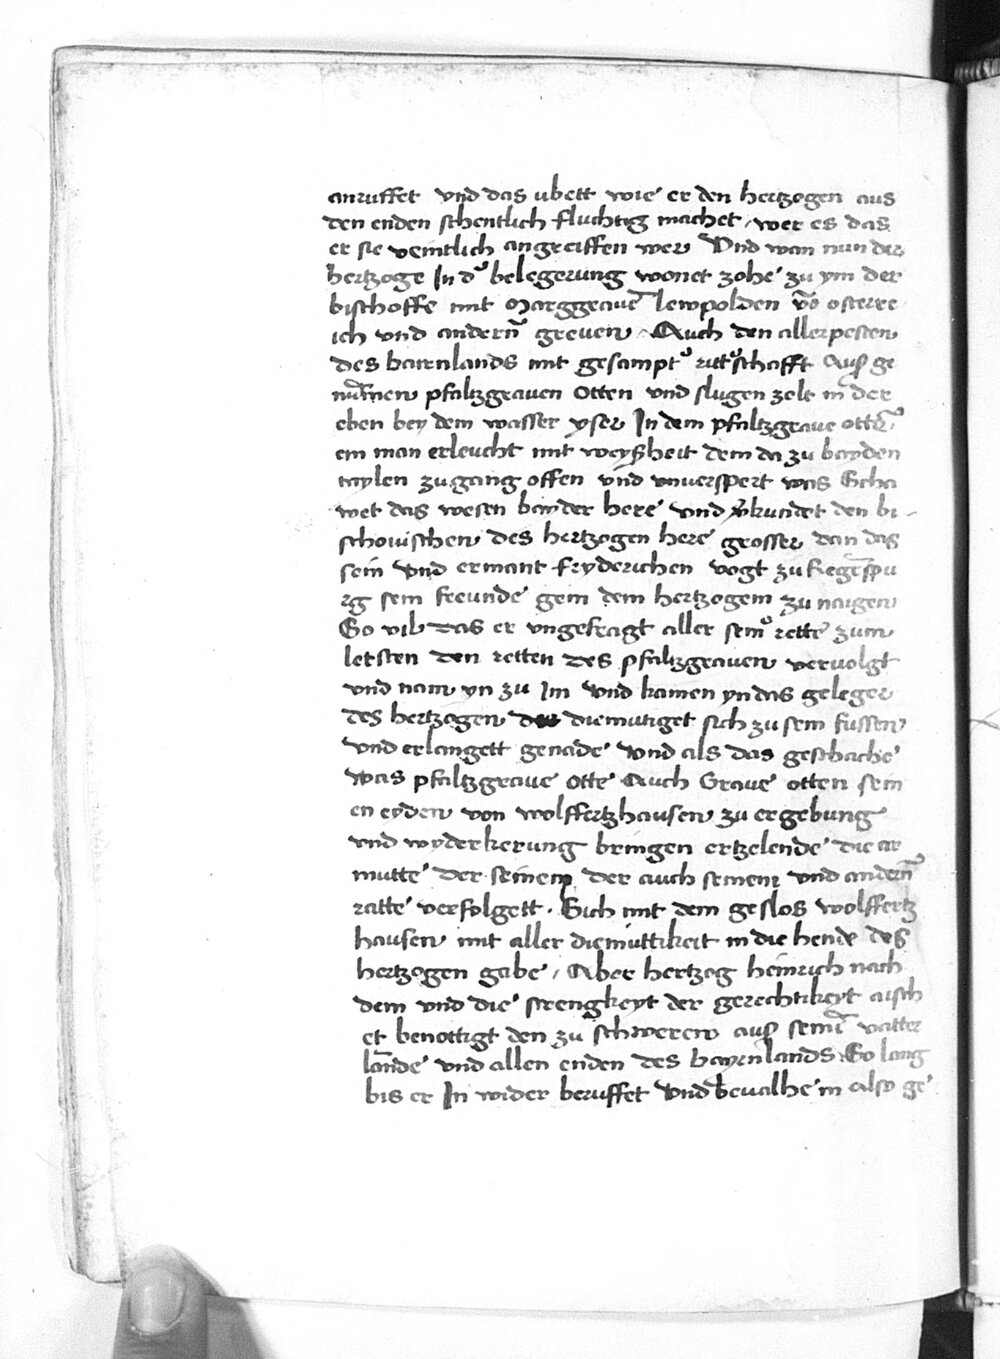 anruffet vnd das vbett wie er den hertzogen aus
den enden schentlich fluchtig machet / wer es das
er sie veintlich angreiffen wer Vnd wan nun der
hertzoge In d' belegerung wonet zohe zu ym der
bischoffe mit Marggraue lewpolden vo osterre
ich vnd andern greuen / Auch den allerpesten
des bairnlands mit gesampt' ritt'schafft Ausz ge
numen pfaltzgrauen Otten vnd slugen zelt in der
eben bey dem wasser yser In dem pfaltzgraue otte
ein man erleucht mit weyszheit dem da zu bayden
taylen zugang offen vnd vnuerspert was Scha
wet das wesen bayder here vnd v'kundet den bi-
schouischen des hertzogen here grosser dan das
sein vnd ermant fryderichen vogt zu Regenspu
rg sein freunde gein dem hertzogem zu naigen
So vil das er vngefragt aller sein' rette zum
letsten den retten des pfaltzgrauen vervolgt
vnd nam yn zu Im vnd kamen yn das geleger
des hertzogen diemutiget sich zu sein fussen
vnd erlangett genade vnd als das geschache
was pfaltzgraue Otte Auch Graue otten sein
en eyden von wolffertzhausen zu ergebung
vnd wyderkerung bringen ertzelende die ar
mutte der seinem der auch seinem vnd andern
ratte verfolgett . Sich mit dem geslos wolffertz
hausen mit aller diemuttikeit in die hende des
hertzogen gabe / Aber hertzog heinrich nach
dem vnd die strengkeyt der gerechtikeyt aisch
et benottigt den zu schweren ausz seim vatter
lande vnd allen enden des bayrnlands So lang
bis er In wider beruffet vnd beualhe in also ge